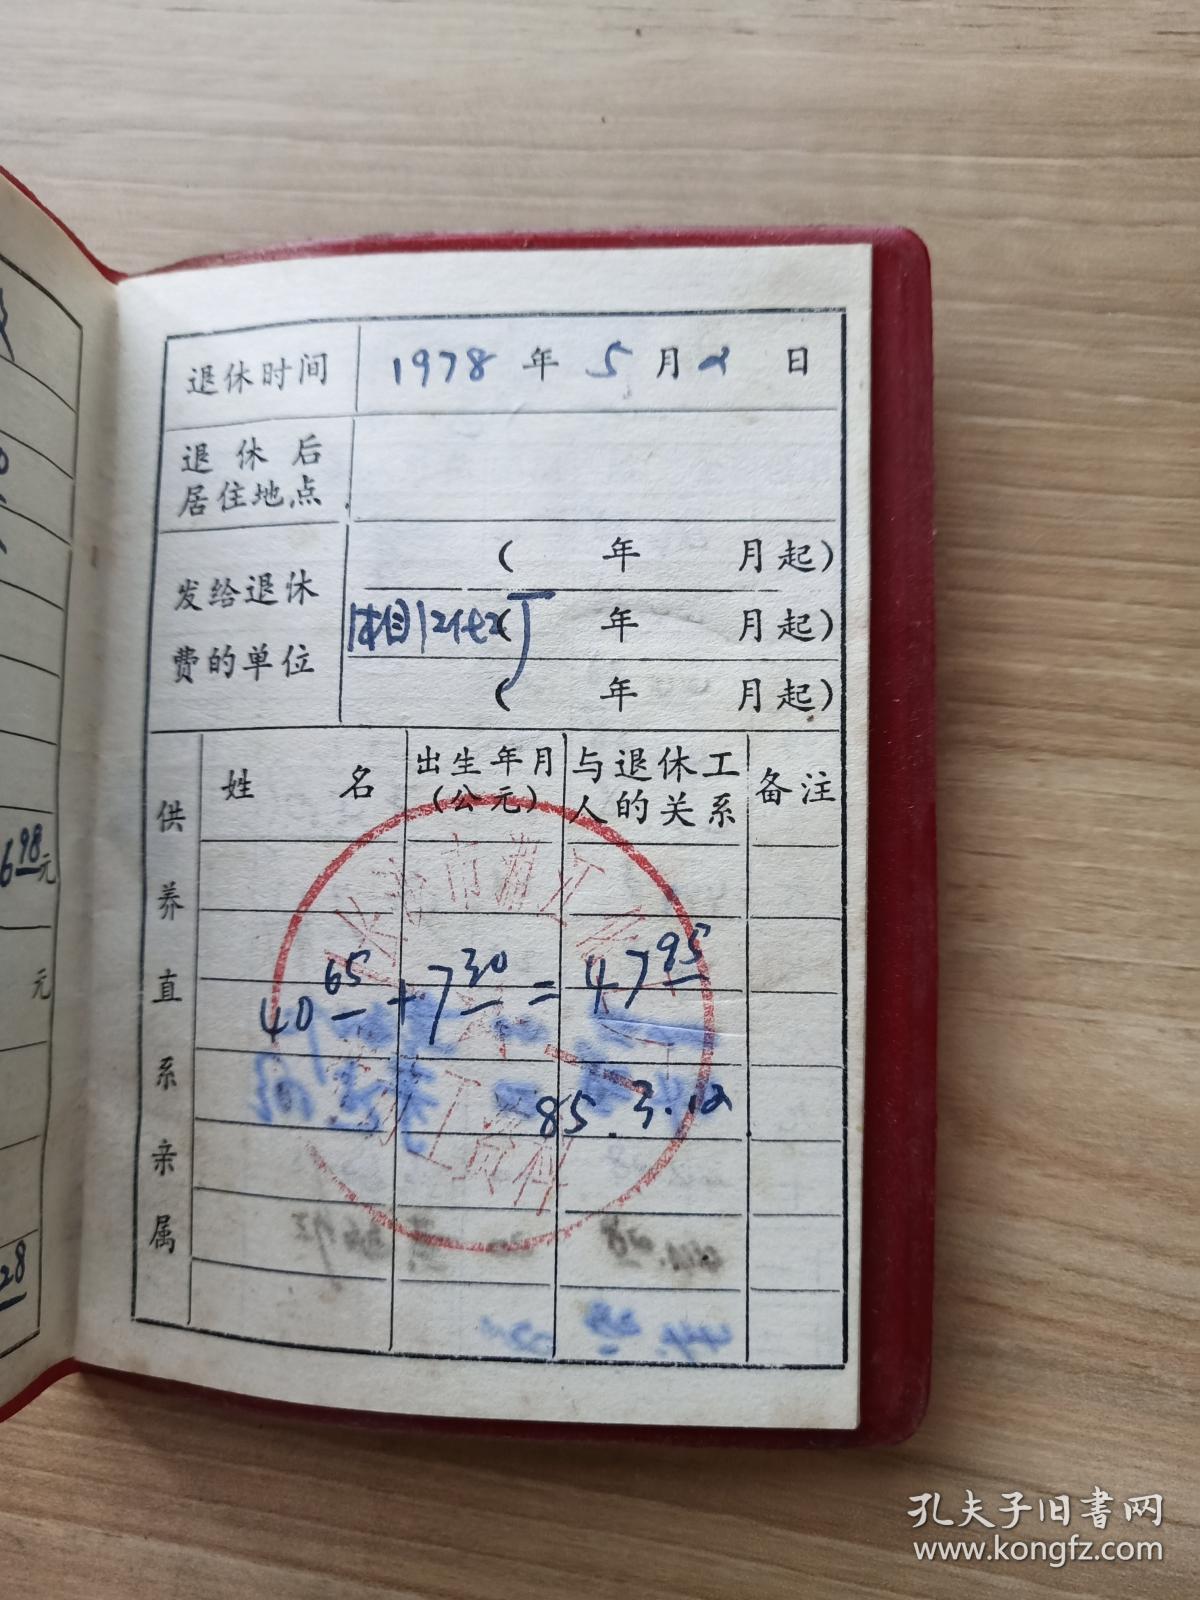 退休时间 1978 年 5 月 2 日
退休后
居住地点
发给退休
费的单位
( 年 月起)
( 年 月起)
( 年 月起)
供养直系亲属
姓名 出生年月(公元) 与退休工人的关系 备注
40 65 + 7 30 = 47 95
85.3.12
工资科
6 98元
元
28
孔夫子旧书网
www.kongfz.com